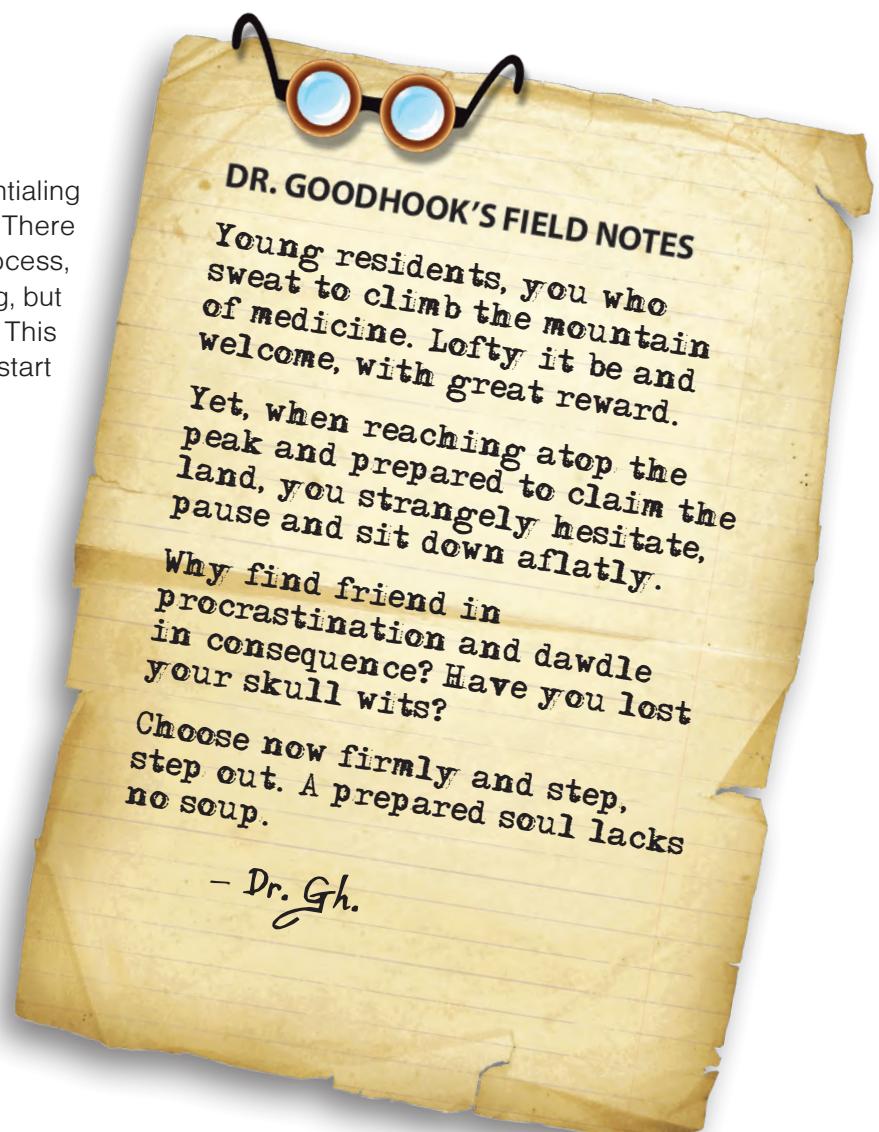 ntialing
There
ocess,
g, but
This
start
DR. GOODHOOK'S FIELD NOTES
Young residents, you who
sweat to climb the mountain
of medicine. Lofty it be and
welcome, with great reward.
Yet, when reaching atop the
peak and prepared to claim the
land, you strangely hesitate,
pause and sit down aflatly.
Why find friend in
procrastination and dawdle
in consequence? Have you lost
your skull wits?
Choose now firmly and step,
step out. A prepared soul lacks
no soup.
– Dr. Gh.